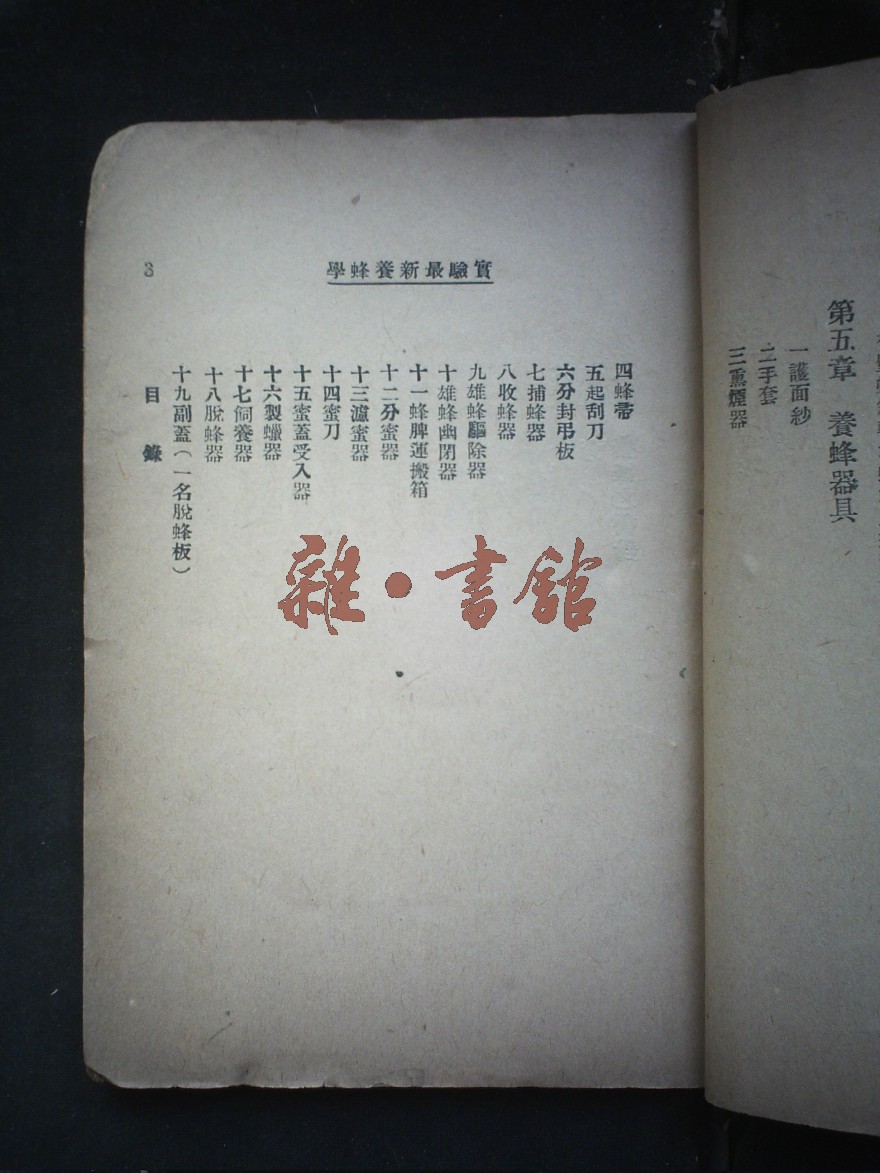 第五章 養蜂器具
一護面紗
二手套
三熏煙器
實驗最新養蜂學
3
四蜂帚
五起刮刀
六分封弔板
七捕蜂器
八收蜂器
九雄蜂驅除器
十雄蜂幽閉器
十一蜂脾運搬箱
十二分蜜器
十三濾蜜器
十四蜜刀
十五蜜蓋受入器
十六製蠟器
十七飼養器
十八脫蜂器
十九副蓋(一名脫蜂板)
目錄
雜·書館